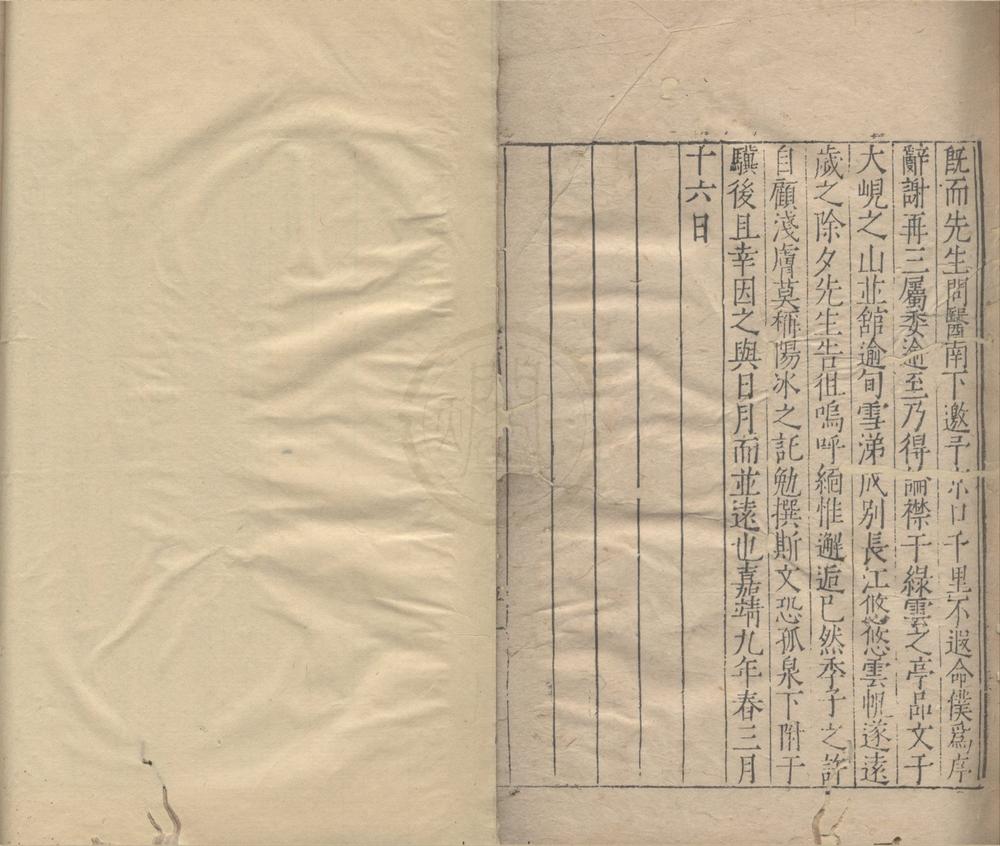 既而先生問醫南下邀予京口千里不遐命僕爲序
辭謝再三屬委逾至乃得論襟于綠雲之亭品文于
大峴之山並館逾旬雪涕成别長江悠悠雲帆遂遠
歲之除夕先生告徂嗚呼緬惟邂逅已然季子之許
自顧淺膚莫稱陽冰之託勉撰斯文恐孤泉下附于
驥後且幸因之與日月而並遠也嘉靖九年春三月
十六日